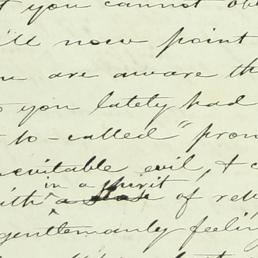 you cannot
'll now point
are aware th
you lately had
so-called "prom
evitable evil, & c
in a spirit
with a of re
gentlemanly feeling